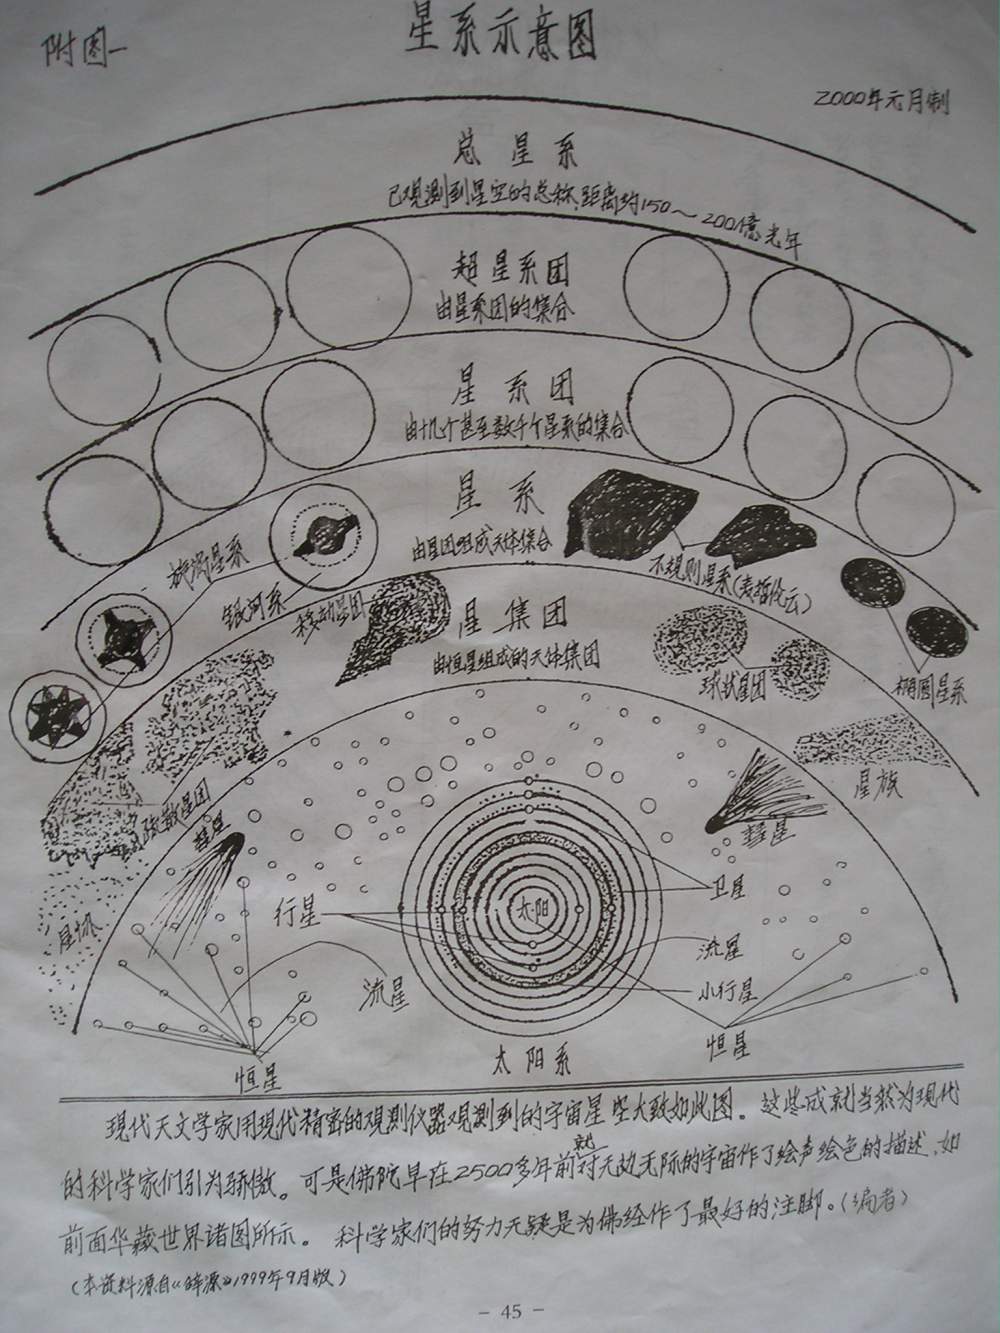 附图一
星系示意图
2000年元月制
总星系
已观测到星空的总称,距离约150～200億光年
超星系团
由星系团的集合
星系团
由十几个甚至数千个星系的集合
星系
由星团组成天体集合
旋涡星系
银河系
不规则星系(麦哲伦云)
椭圆星系
移动星团
星集团
由恒星组成的天体集团
球状星团
星族
疏散星团
彗星
彗星
星协
行星
太阳
卫星
流星
流星
小行星
恒星
太阳系
恒星
现代天文学家用现代精密的观测仪器观测到的宇宙星空大致如此图。这些成就当然为现代
的科学家们引为骄傲。可是佛陀早在2500多年前就对无边无际的宇宙作了绘声绘色的描述,如
前面华藏世界诸图所示。 科学家们的努力无疑是为佛经作了最好的注脚。(编者)
(本资料源自《辞源》1999年9月版)
- 45 -